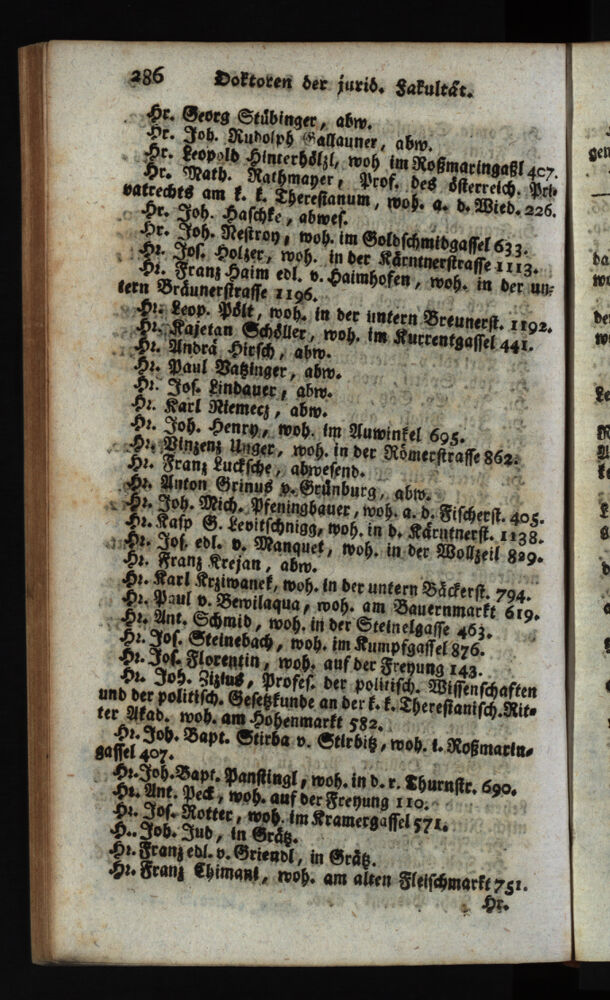 286 Doktoren der jurid. Fakultät.
Hr. Georg Stübinger, abw.
Hr. Joh. Rudolph Gallauner, abw.
Hr. Leopold Hinterhölzl, woh im Roßmaringaßl 407.
Hr. Math. Rathmayer, Prof. des österreich. Pri-
vatrechts am k. k. Theresianum, woh. a. d. Wied. 226.
Hr. Joh. Haschke, abwes.
Hr. Joh. Nestroy, woh. im Goldschmidgassel 633.
Hr. Jos. Holzer, woh. in der Kärntnerstrasse 1113.
Hr. Franz Haim edl. v. Haimhofen, woh. in der un-
tern Bräunerstrasse 1196.
Hr. Leop. Pölt, woh. in der untern Breunerst. 1192.
Hr. Kajetan Schöller, woh. im Kurrentgassel 441.
Hr. Andrä Hirsch, abw.
Hr. Paul Vatzinger, abw.
Hr. Jos. Lindauer, abw.
Hr. Karl Niemecz, abw.
Hr. Joh. Henry, woh. im Auwinkel 695.
Hr. Vinzenz Unger, woh. in der Römerstrasse 862.
Hr. Franz Lucksche, abwesend.
Hr. Anton Grinus v. Grünburg, abw.
Hr. Joh. Mich. Pfeningbauer, woh. a. d. Fischerst. 405.
Hr. Kasp G. Levitschnigg, woh. in d. Kärntnerst. 1138.
Hr. Jos. edl. v. Manquet, woh. in der Wollzeil 829.
Hr. Franz Krejan, abw.
Hr. Karl Krziwanek, woh. in der untern Bäckerst. 794.
Hr. Paul v. Bewilaqua, woh. am Bauernmarkt 619.
Hr. Ant. Schmid, woh. in der Steinelgasse 463.
Hr. Jos. Steinebach, woh. im Kumpfgassel 876.
Hr. Jos. Florentin, woh. auf der Freyung 143.
Hr. Joh. Zizius, Profes. der politisch. Wissenschaften
und der politisch. Gesetzkunde an der k. k. Theresianisch. Rit-
ter Akad. woh. am Hohenmarkt 582.
Hr. Joh. Bapt. Stirba v. Stirbitz, woh. i. Roßmarin-
gassel 407.
Hr. Joh. Bapt. Panstingl, woh. in d. r. Thurnstr. 690.
Hr. Ant. Peck, woh. auf der Freyung 110.
Hr. Jos. Rotter, woh. im Kramergassel 571.
H.. Joh. Jud, in Grätz.
Hr. Franz edl. v. Griendl, in Grätz.
Hr. Franz Thimani, woh. am alten Fleischmarkt 751.
Hr.